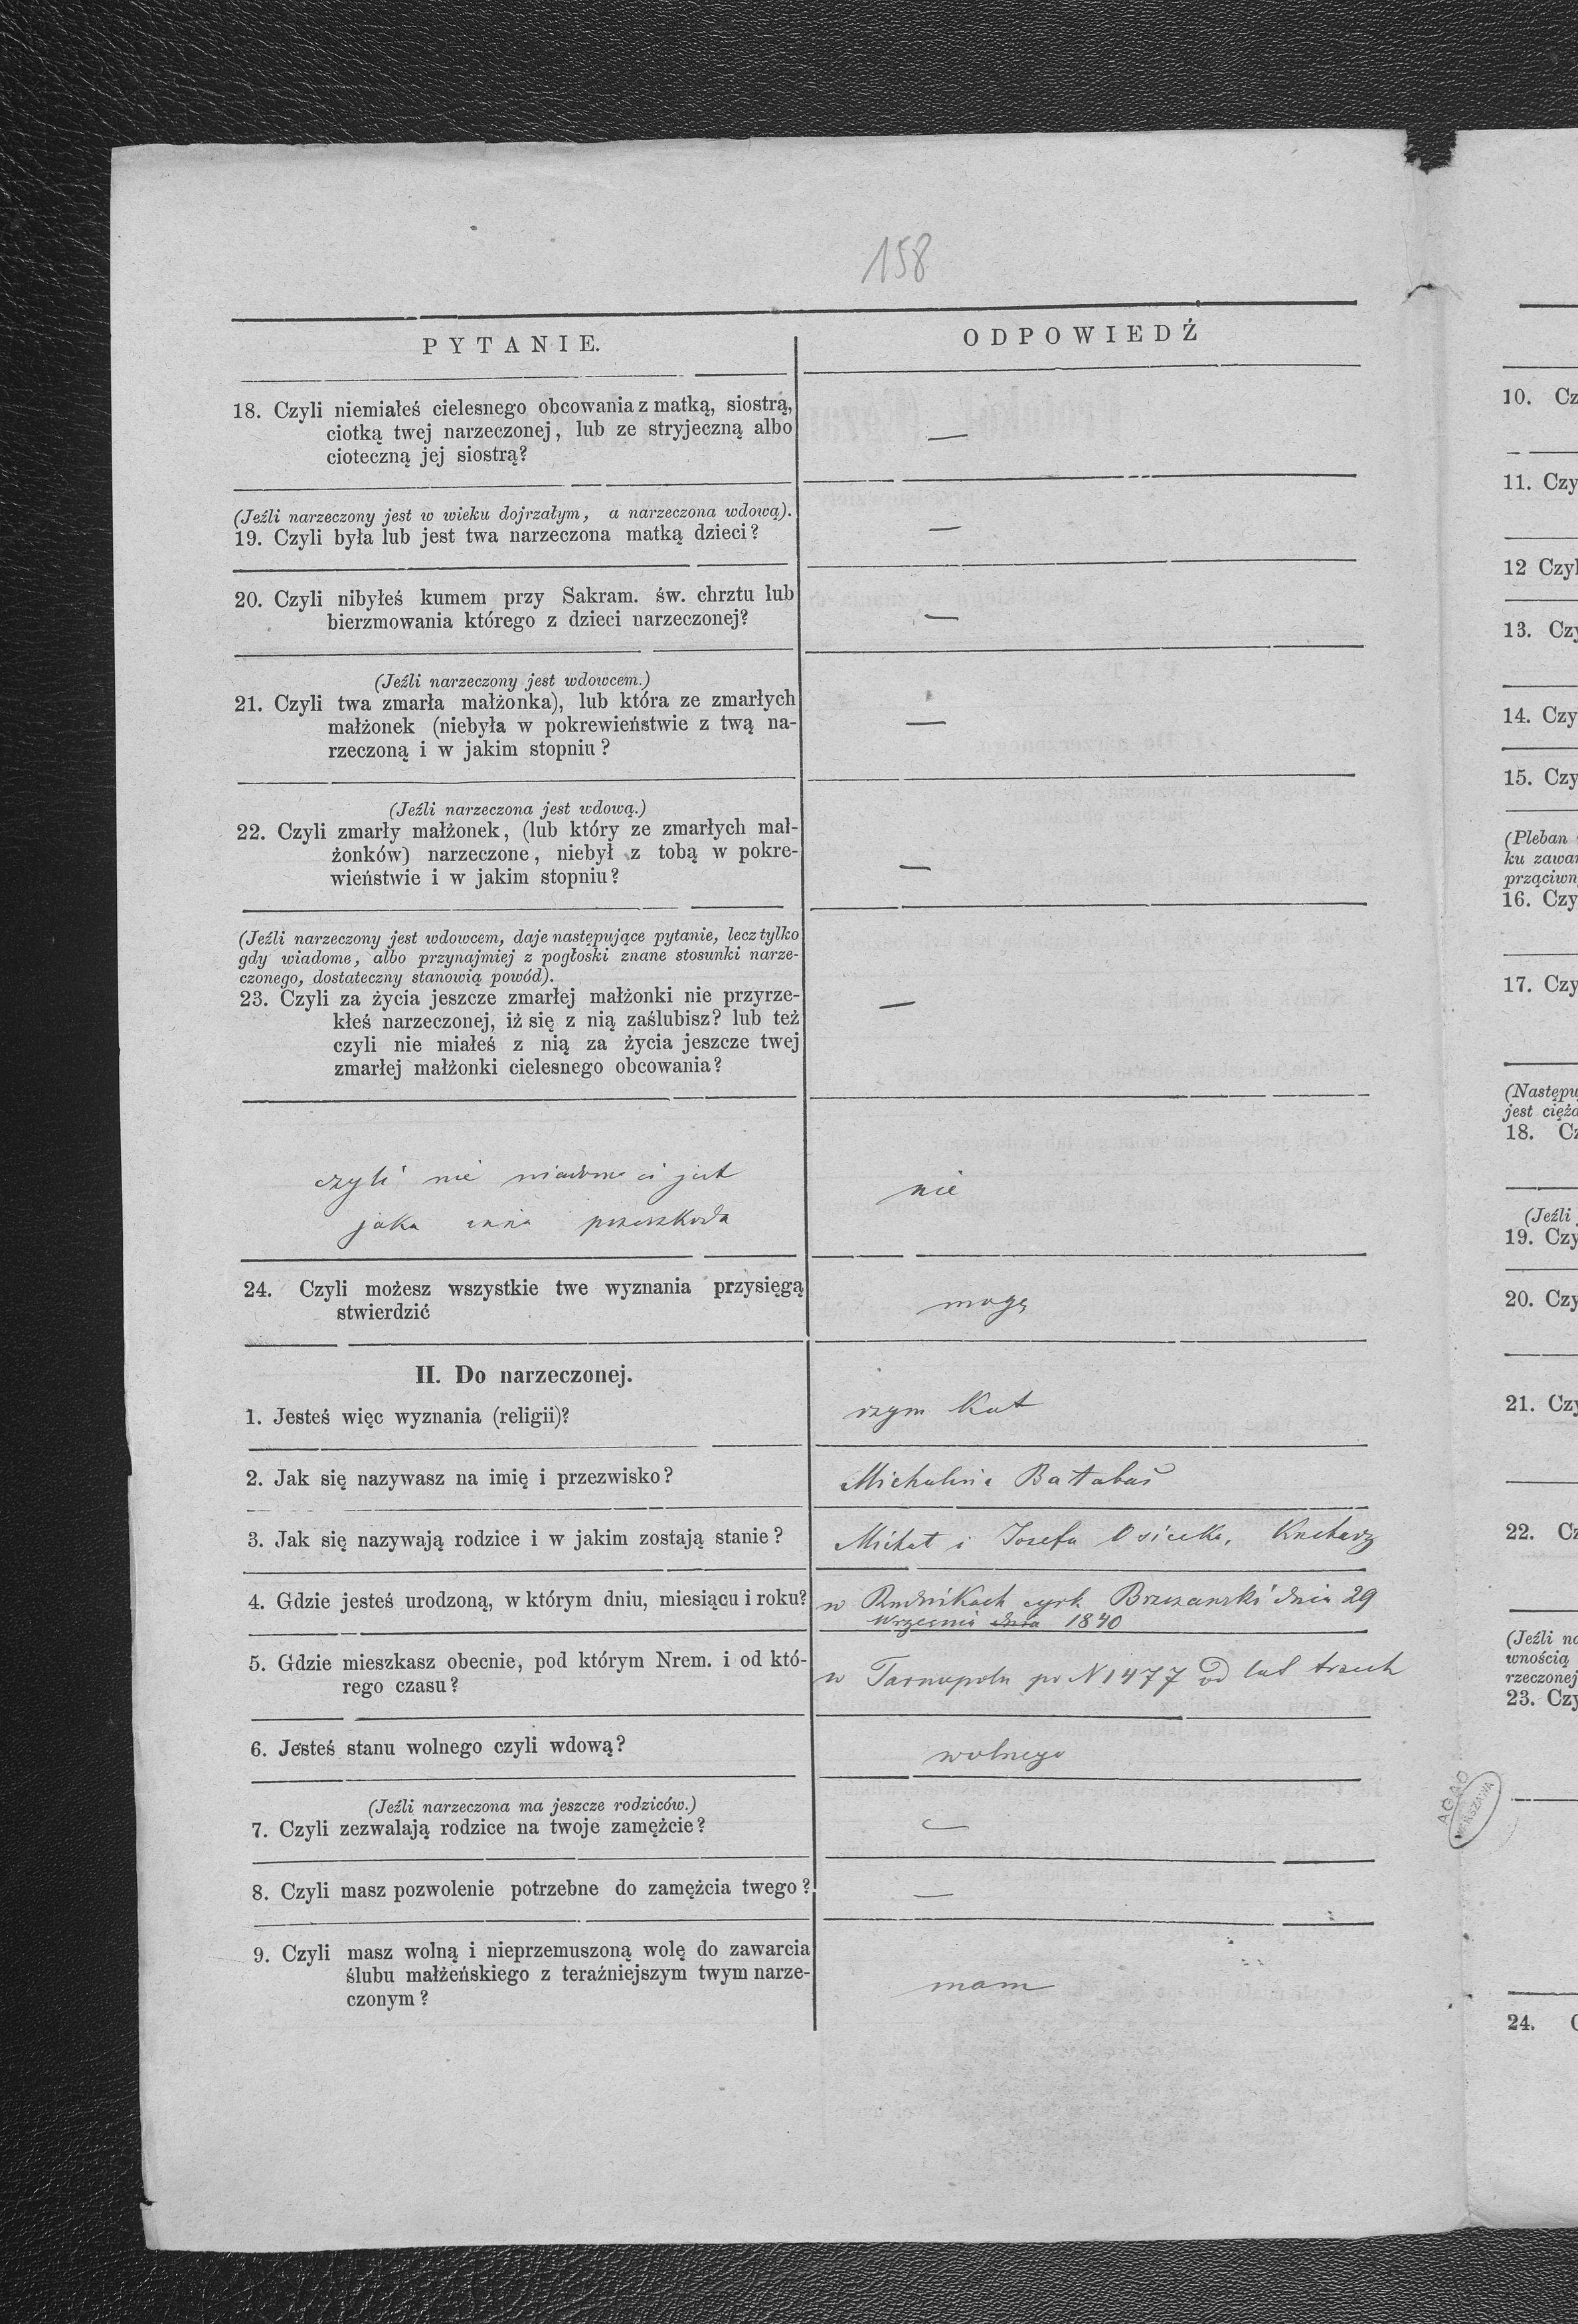 158
PYTANIE.
ODPOWIEDŹ
18. Czyli niemiałeś cielesnego obcowania z matką, siostrą,
ciotką twej narzeczonej, lub ze stryjeczną albo
cioteczną jej siostrą?
—
(Jeźli narzeczony jest w wieku dojrzałym, a narzeczona wdową).
19. Czyli była lub jest twa narzeczona matką dzieci?
—
20. Czyli nibyłeś kumem przy Sakram. św. chrztu lub
bierzmowania którego z dzieci narzeczonej?
—
(Jeźli narzeczony jest wdowcem.)
21. Czyli twa zmarła małżonka), lub która ze zmarłych
małżonek (niebyła w pokrewieństwie z twą na-
rzeczoną i w jakim stopniu?
—
(Jeźli narzeczona jest wdową.)
22. Czyli zmarły małżonek, (lub który ze zmarłych mał-
żonków) narzeczone, niebył z tobą w pokre-
wieństwie i w jakim stopniu?
—
(Jeźli narzeczony jest wdowcem, daje następujące pytanie, lecz tylko
gdy wiadome, albo przynajmiej z pogłoski znane stosunki narze-
czonego, dostateczny stanowią powód).
23. Czyli za życia jeszcze zmarłej małżonki nie przyrze-
kłeś narzeczonej, iż się z nią zaślubisz? lub też
czyli nie miałeś z nią za życia jeszcze twej
zmarłej małżonki cielesnego obcowania?
—
czyli nie wiadome ci jest
jaka inna przeszkoda
nie
24. Czyli możesz wszystkie twe wyznania przysięgą
stwierdzić
mogę
II. Do narzeczonej.
1. Jesteś więc wyznania (religii)?
rzym Kat
2. Jak się nazywasz na imię i przezwisko?
Michalina Bałabaś
3. Jak się nazywają rodzice i w jakim zostają stanie?
Michał i Josefa Osicka, Kucharz
4. Gdzie jesteś urodzoną, w którym dniu, miesiącu i roku?
w Rudnikach cyrk Brzezanski dnia 29
Wrzesnia dnia 1840
5. Gdzie mieszkasz obecnie, pod którym Nrem. i od któ-
rego czasu?
w Tarnopolu po N 1477 od lat trzech
6. Jesteś stanu wolnego czyli wdową?
wolnego
(Jeźli narzeczona ma jeszcze rodziców.)
7. Czyli zezwalają rodzice na twoje zamężcie?
—
8. Czyli masz pozwolenie potrzebne do zamężcia twego?
—
9. Czyli masz wolną i nieprzemuszoną wolę do zawarcia
ślubu małżeńskiego z teraźniejszym twym narze-
czonym?
mam
10. Cz
11. Czy
12 Czyl
13. Czy
14. Czy
15. Czy
(Pleban
ku zawar
prząciwn
16. Czy
17. Czy
(Następu
jest cięża
18. Cz
(Jeźli
19. Czy
20. Czy
21. Czy
22. Cz
(Jeźli na
wnością
rzeczonej
23. Czy
AGAD
WARSZAWA
24. C